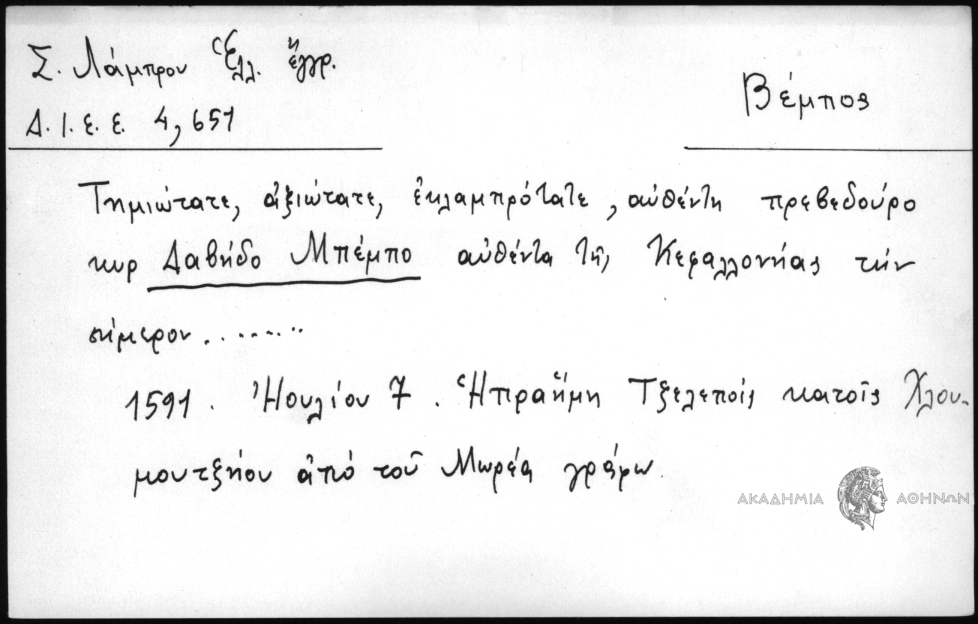 Σ. Λάμπρου Ἑλλ. ἔγγρ.
Δ. Ι. Ε. Ε. 4, 651
Βέμπος
Τημιώτατε, ἀξιώτατε, ἐκλαμπρότατε, αὐθέντη πρεβεδούρο
κυρ Δαβήδο Μπέμπο αὐθέντα τῆς Κεφαλλονηάς τήν
σήμερον.........
1591. Ἡουλίου 7. Ἡπραήμη Τζελεποίς κατοῖς Χλου-
μουτζηίου ἀπό τοῦ Μωρέα γράφω.
ΑΚΑΔΗΜΙΑ ΑΘΗΝΩΝ